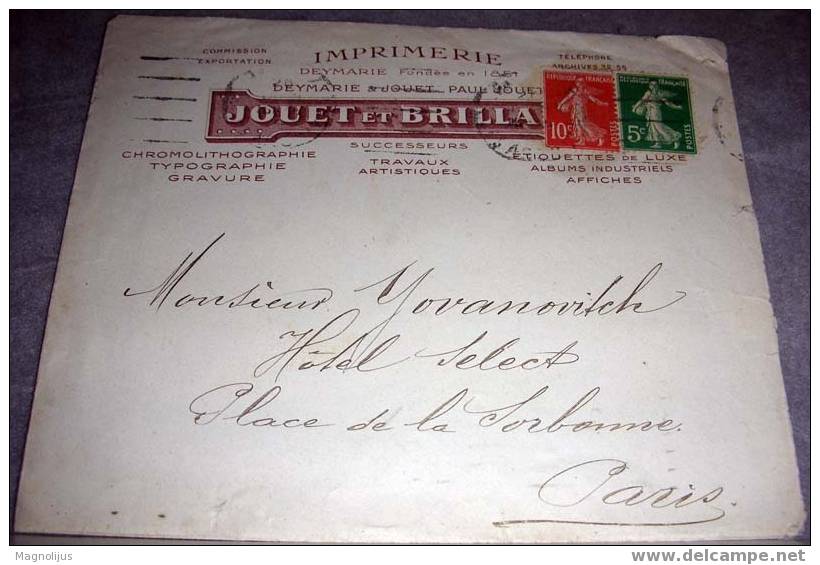 COMMISSION
EXPORTATION
IMPRIMERIE
TÉLÉPHONE
ARCHIVES 38-55
DEYMARIE Fondée en 1851
DEYMARIE & JOUET, PAUL JOUET
JOUET ET BRILLA
SUCCESSEURS
CHROMOLITHOGRAPHIE
TYPOGRAPHIE
GRAVURE
TRAVAUX
ARTISTIQUES
ÉTIQUETTES DE LUXE
ALBUMS INDUSTRIELS
AFFICHES
REPUBLIQUE FRANÇAISE
10c
POSTES
REPUBLIQUE FRANÇAISE
5c
POSTES
Monsieur Yovanovitch
Hôtel Select
Place de la Sorbonne.
Paris.
Magnolijus
www.delcampe.net